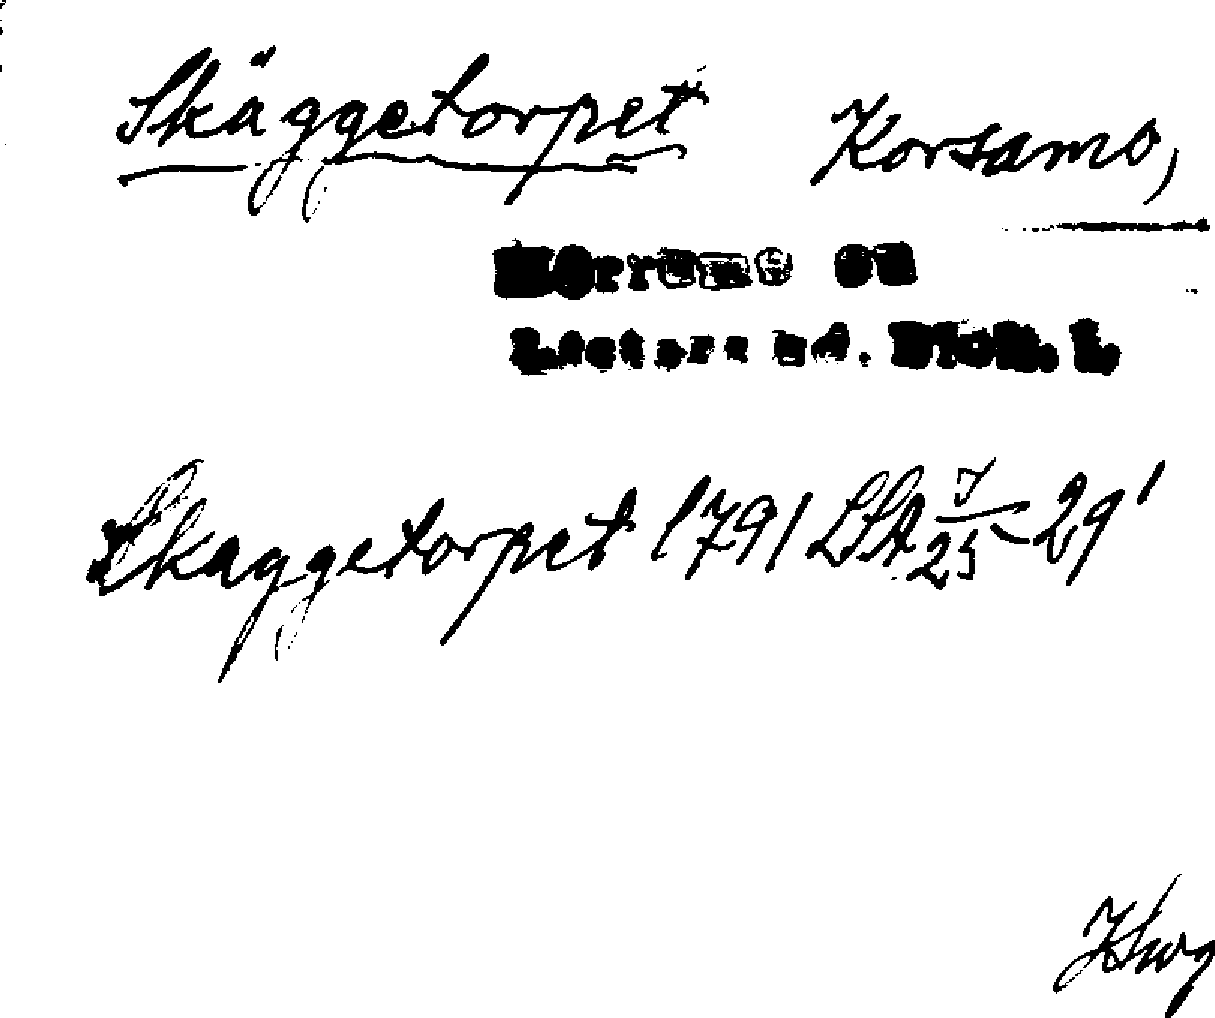 Skäggetorpet Korsamo,
Mörrums sn
Listers hd. Blek. l.
Skaggetorpet 1791 LSA J/25-29'